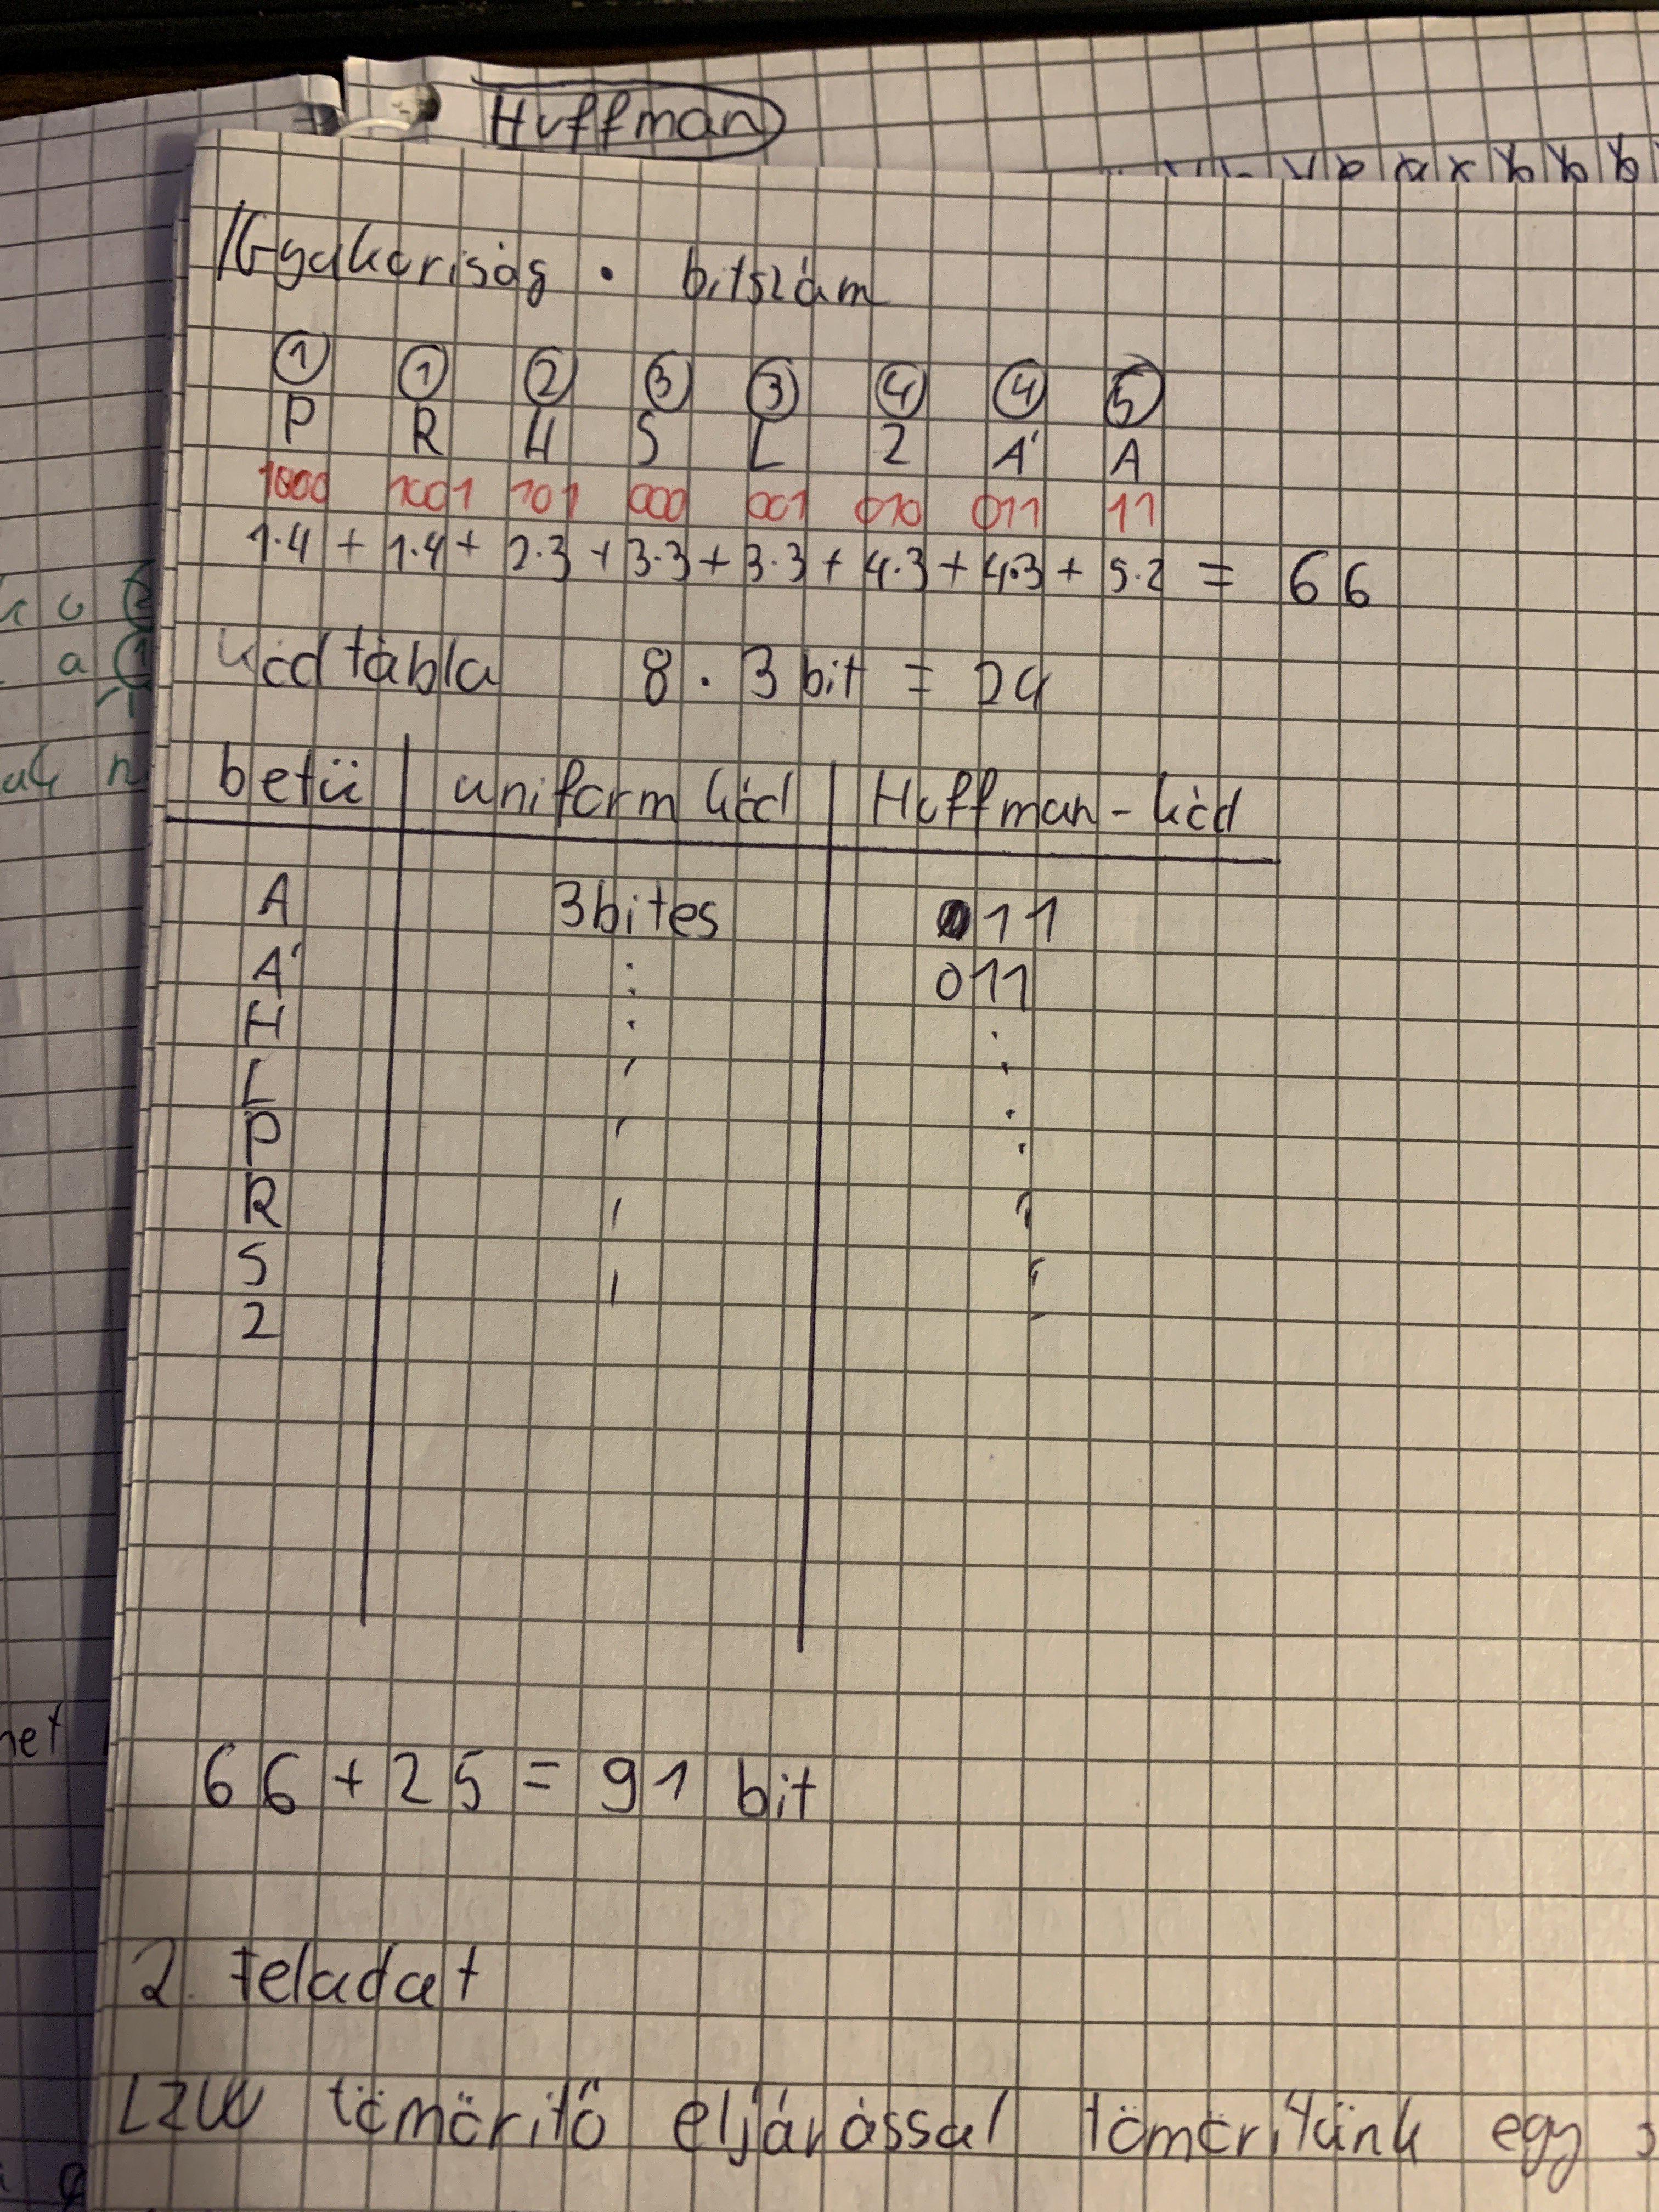 Huffman
Gyakoriság · bitszám
1 1 2 3 3 4 4 5
P R H S L Z Á A
1000 1001 101 000 001 010 011 11
1·4 + 1·4 + 2·3 + 3·3 + 3·3 + 4·3 + 4·3 + 5·2 = 66
kód tábla 8 · 3 bit = 24
betü uniform kód Huffman - kód
A 3bites 11
Á 011
H
L
P
R
S
Z
66 + 25 = 91 bit
2. feladat
LZW tömörítő eljárással tömörítünk egy